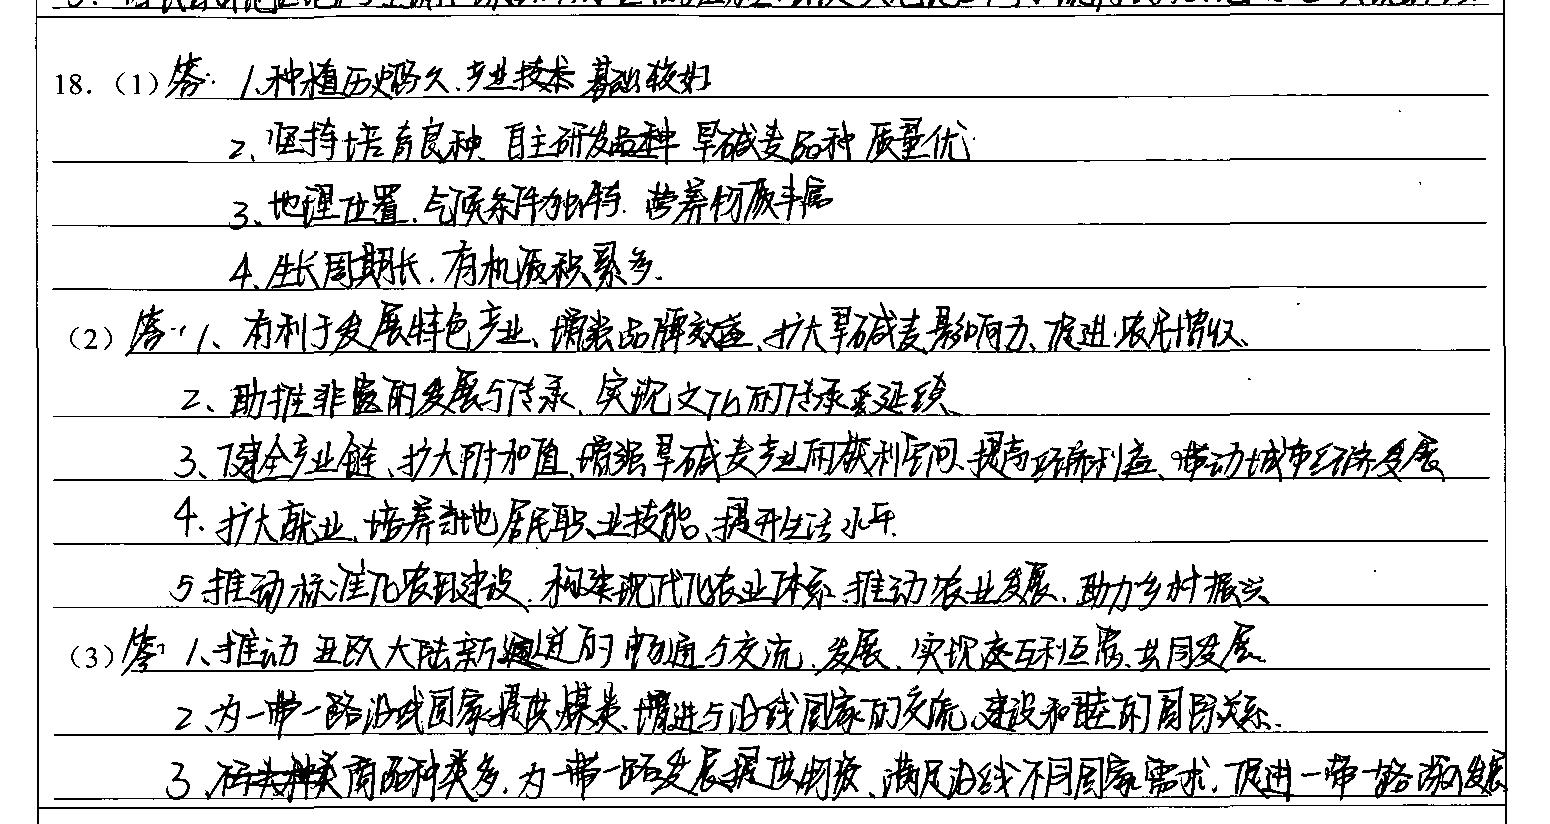 18.（1）答：1、种植历史悠久、产业技术基础较好
2、坚持培育良种、自主研发品种 旱碱麦品种 质量优
3、地理位置、气候条件独特、营养物质丰富
4、生长周期长、有机质积累多.
（2）答：1、有利于发展特色产业、增强品牌效益、扩大旱碱麦影响力、促进农民增收、
2、助推非遗的发展与传承、实现文化的传承延续
3、健全产业链、扩大附加值、增强旱碱麦产业的获利空间、提高经济利益、带动城市经济发展
4.扩大就业、培养当地居民职业技能、提升生活水平.
5 推动标准化农田建设、构建现代化农业体系 推动农业发展、助力乡村振兴
（3）答：1、推动亚欧大陆新通道的畅通与交流、发展、实现互利互惠、共同发展、
2、为一带一路沿线国家提供煤炭、增进与沿线国家的交流、建设和睦的国际关系.
3、商品种类多、为一带一路发展提供物资、满足沿线不同国家需求、促进一带一路的发展